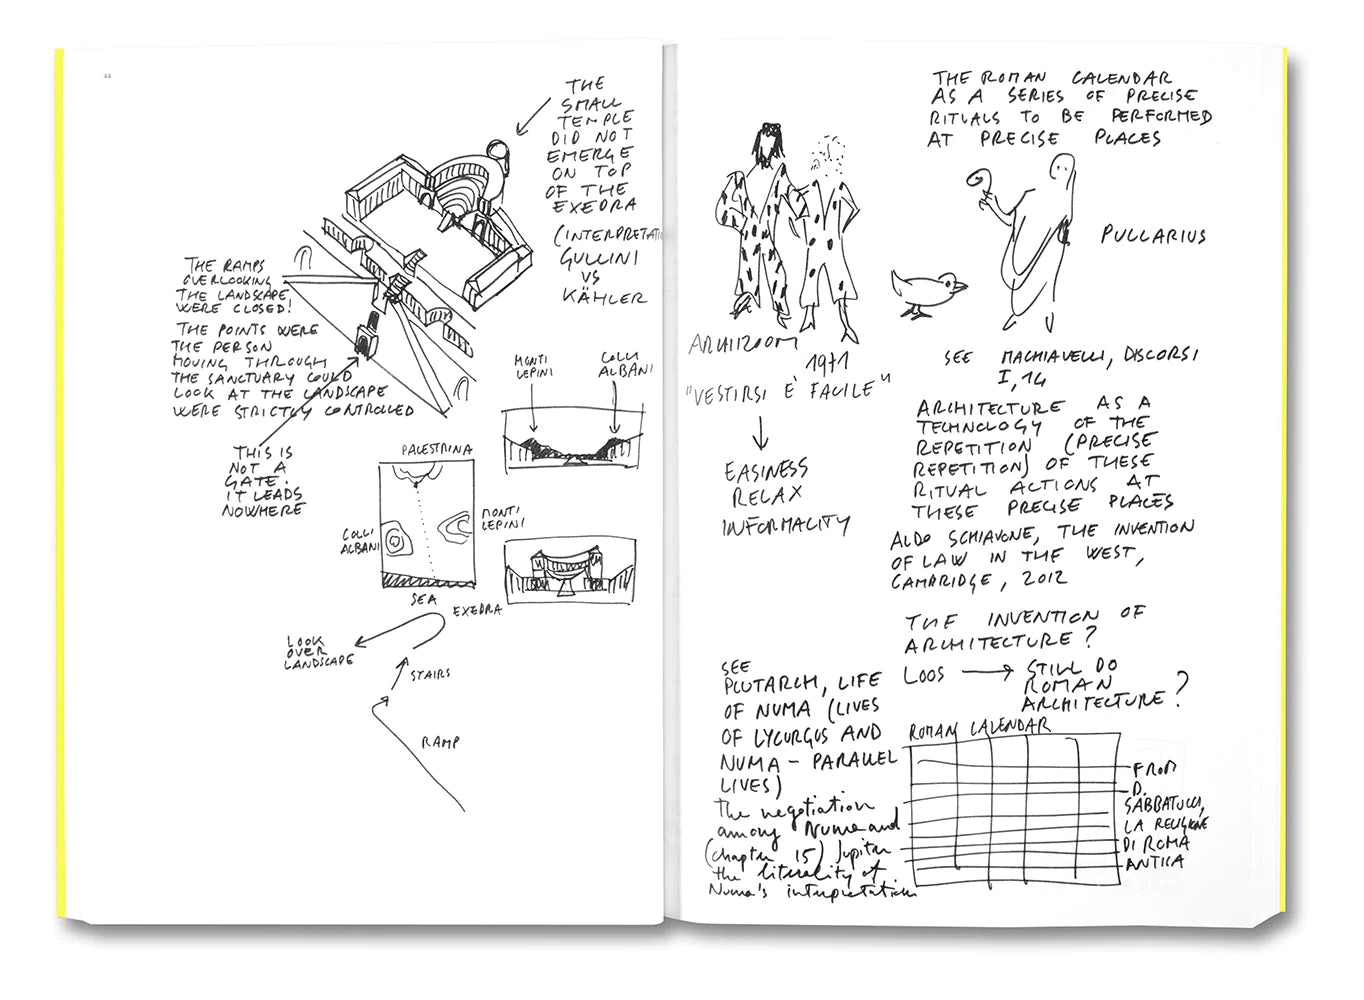 44
THE
SMALL
TEMPLE
DID NOT
EMERGE
ON TOP
OF THE
EXEDRA
(INTERPRETATI
GULLINI
VS
KÄHLER
THE RAMPS
OVERLOOKING
THE LANDSCAPE
WERE CLOSED!
THE POINTS WERE
THE PERSON
MOVING THROUGH
THE SANCTUARY COULD
LOOK AT THE LANDSCAPE
WERE STRICTLY CONTROLLED
THIS IS
NOT A
GATE.
IT LEADS
NOWHERE
MONTI
LEPINI
COLLI
ALBANI
PALESTRINA
COLLI
ALBANI
MONTI
LEPINI
SEA
EXEDRA
LOOK
OVER
LANDSCAPE
STAIRS
RAMP
THE ROMAN CALENDAR
AS A SERIES OF PRECISE
RITUALS TO BE PERFORMED
AT PRECISE PLACES
PULLARIUS
ARCHIZOOM
1971
"VESTIRSI È FACILE"
EASINESS
RELAX
INFORMALITY
SEE MACHIAVELLI, DISCORSI
I, 14
ARCHITECTURE AS A
TECHNOLOGY OF THE
REPETITION (PRECISE
REPETITION) OF THESE
RITUAL ACTIONS AT
THESE PRECISE PLACES
ALDO SCHIAVONE, THE INVENTION
OF LAW IN THE WEST,
CAMBRIDGE, 2012
THE INVENTION OF
ARCHITECTURE?
LOOS → STILL DO
ROMAN
ARCHITECTURE?
SEE
PLUTARCH, LIFE
OF NUMA (LIVES
OF LYCURGUS AND
NUMA – PARALLEL
LIVES)
the negotiation
among Numa and
(chapter 15) Jupiter
the literality of
Numa's interpretation
ROMAN CALENDAR
FROM
D.
SABBATUCCI,
LA RELIGIONE
DI ROMA
ANTICA